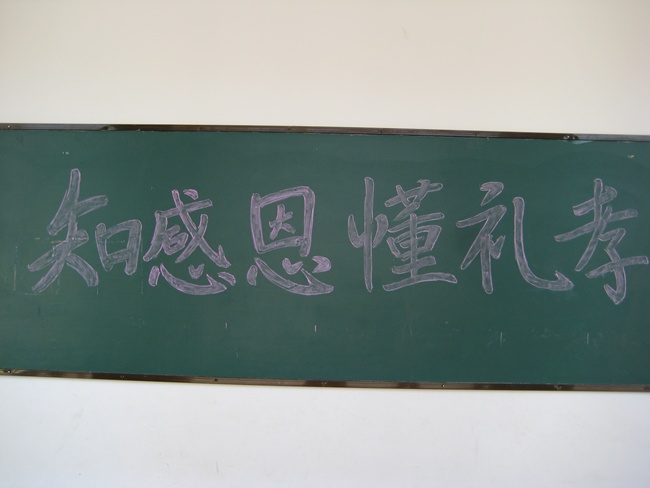 知感恩懂礼孝